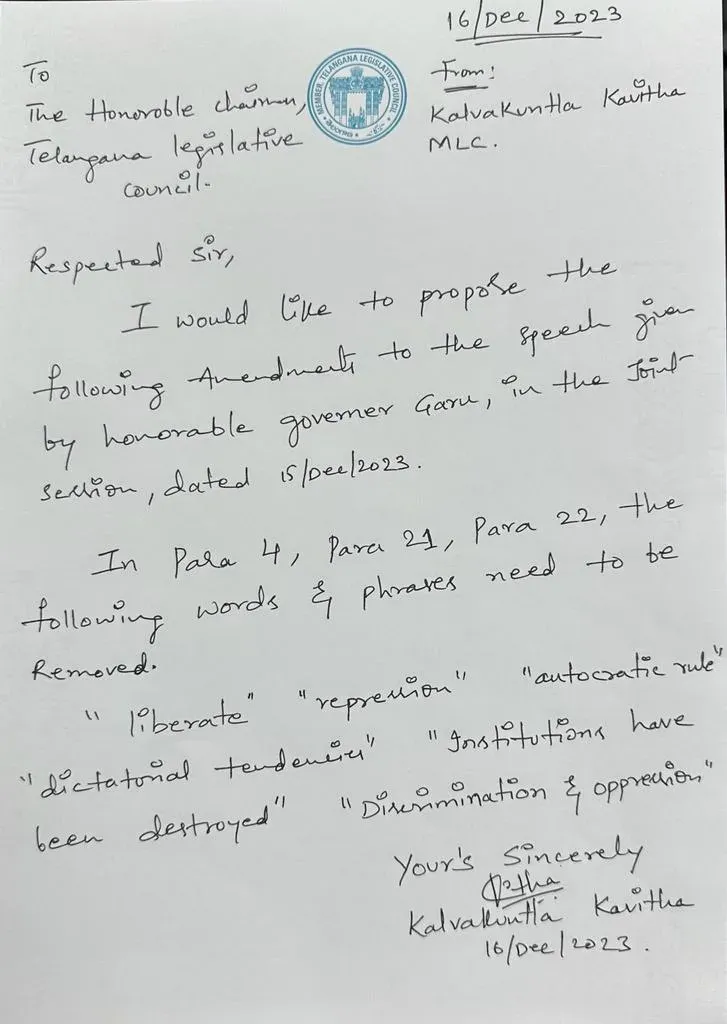 16/Dec/2023
To
The Honoroble chairman,
Telangana legislative
council.
MEMBER TELANGANA LEGISLATIVE COUNCIL
తెలంగాణ
From:
Kalvakuntla Kavitha
MLC.
Respected Sir,
I would like to propose the
following Amendments to the speech given
by honorable governer Garu, in the Joint
session, dated 15/Dec/2023.
In Para 4, Para 21, Para 22, the
following words & phrases need to be
Removed.
"liberate" "repression" "autocratic rule"
"dictatorial tendencies" "Institutions have
been destroyed" "Discrimination & oppression"
Your's Sincerely
Kalvakuntla Kavitha
16/Dec/2023.